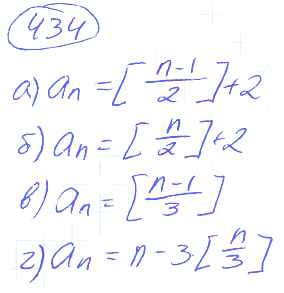 434
а) aₙ = [(n-1)/2] + 2
б) aₙ = [n/2] + 2
в) aₙ = [(n-1)/3]
г) aₙ = n - 3·[n/3]